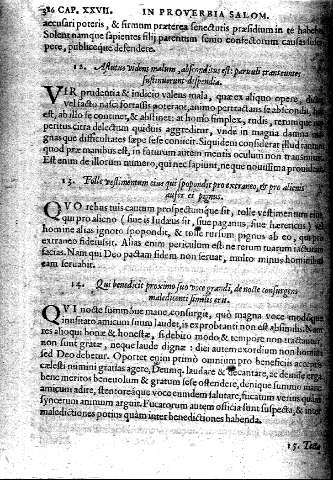 386 CAP. XXVII. IN PROVERBIA SALOM.
accusari poteris, & firmum præterea senectutis præsidium in te habebit
Solent namque sapientes filij parentum senio confectorum causas sæpe
pere, publiceque defendere.
12. Astutus videns malum, absconditus est: paruuli transeuntes
sustinuerunt dispendia.
VIR prudentia & iudicio valens mala, quæ ex aliquo opere,
vel facto nasci fortassis poterant, animo pertractans se abscondit,
est, ab illo se continet, & abstinet: at homo simplex, rudis, rerumque
peritus circa delectum quiduis aggreditur, vnde in magna damna
gnasque difficultates sæpe sese conijcit. Siquidem considerat illud tantum
quod præ manibus est, in futurum autem mentis oculum non
Est enim de illorum numero, qui nec sapiunt, neque nouissima
13. Tolle vestimentum eius qui spopondit pro extraneo, & pro alienis
aufer ei pignus.
QVO rebus tuis cautum prospectumque sit, tolle vestimentum eius
qui pro alieno (siue is Iudæus sit, siue paganus, siue hæreticus)
homine alias ignoto spopondit, & tolle rursum pignus ab eo, qui pro
extraneo fideiussit. Alias enim periculum est ne rerum tuarum iacturam
facias. Nam qui Deo pactam fidem non seruat, multo minus hominibus
eam seruabit.
14. Qui benedicit proximo suo voce grandi, de nocte consurgens
maledicenti similis erit.
QVI nocte summoque mane consurgit, quo magna voce modoque
inusitato amicum suum laudet, is exprobranti non est absimilis. Nam
res alioqui bonæ & honestæ, si debito modo & tempore non tractantur,
non sunt gratæ, neque laude dignæ: diei autem exordium non homini
sed Deo debetur. Oportet enim primo omnium pro beneficiis acceptis
cælesti numini gratias agere, Denique laudare & decantare, ac deinde erga
bene meritos beneuolum & gratum sese ostendere, denique summo mane
amicum adire, stentoreaque voce eundem salutare, fucatum verius quam
syncerum animum arguit. Fucatorum autem officia sunt suspecta, & inter
maledictiones potius quam inter benedictiones habenda.
15. Tecta